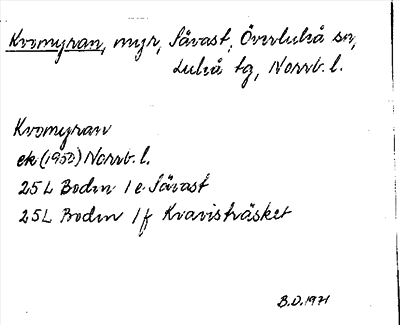 Kvomyran, myr, Sävast, Överluleå sn,
Luleå tg, Norrb. l.
Kvomyran
ek (1950) Norrb. l.
25L Boden 1e Sävast
25L Boden 1f Kravisträsket
B.D. 1971